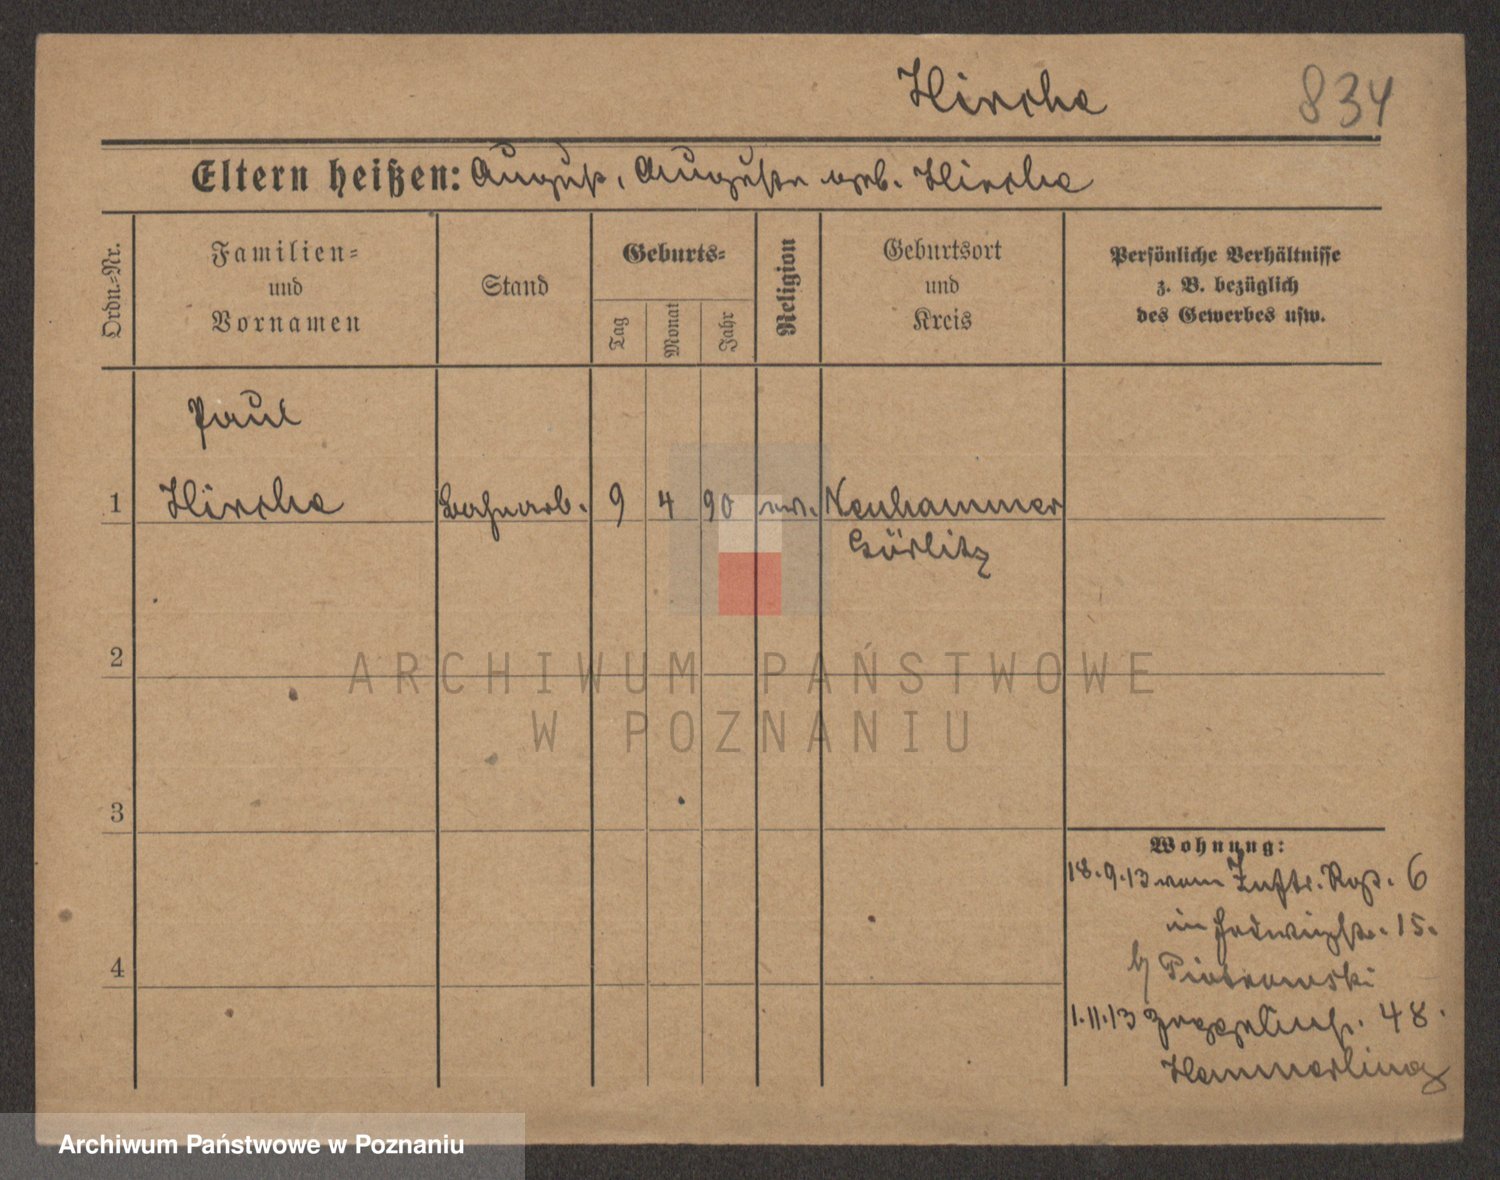 Hirche 834
Eltern heißen: August, Auguste geb. Hirche
Ordn.-Nr.
Familien-
und
Vornamen
Stand
Geburts-
Tag
Monat
Jahr
Religion
Geburtsort
und
Kreis
Persönliche Verhältnisse
z. B. bezüglich
des Gewerbes usw.
Paul
1 Hirche Bahnarb. 9 4 90 ev. Neuhammer
Görlitz
2
ARCHIWUM PAŃSTWOWE
W POZNANIU
3
Wohnung:
18.9.13 vom 6
in Hedwigstr. 15.
b/ Piotrowski
4
1.11.13 48.
Hammerling
Archiwum Państwowe w Poznaniu